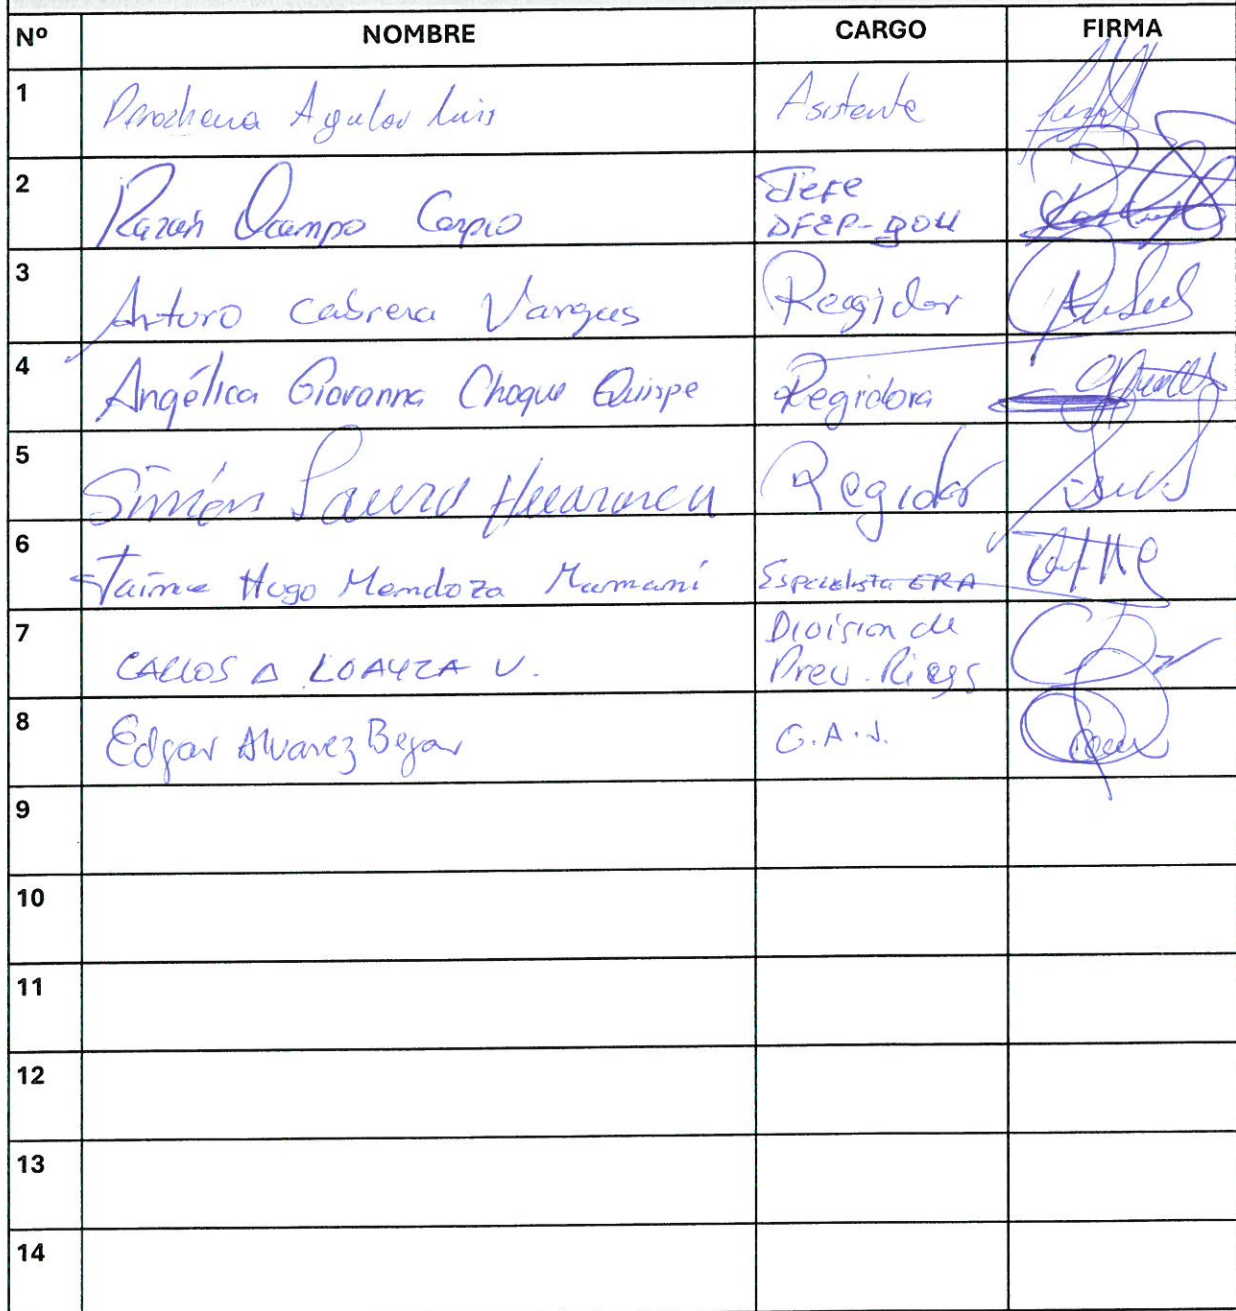 Nº NOMBRE CARGO FIRMA
1 Aguilar Luis Asistente
2 Ocampo Carpio Jefe
DFEP-
3 Arturo Cabrera Vargas Regidor
4 Angélica Giovanna Choque Quispe Regidora
5 Simón Regidor
6 Jaime Hugo Mendoza Mamani Especialista GRA
7 División de
CARLOS A LOAYZA V. Prev. Riesgs
8 Edgar Alvarez Bejar G.A.J.
9
10
11
12
13
14